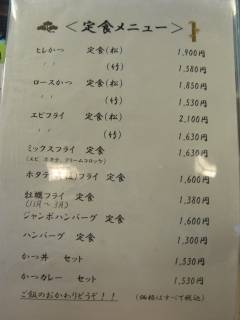 ＜定食メニュー＞
ヒレかつ 定食(松) 1,900円
〃 〃 (竹) 1,580円
ロースかつ 定食(松) 1,850円
〃 〃 (竹) 1,530円
エビフライ 定食(松) 2,100円
〃 〃 (竹) 1,630円
ミックスフライ 定食 1,630円
(エビ ホタテ クリームコロッケ)
ホタテ フライ 定食 1,600円
牡蠣フライ 定食 1,380円
(11月～3月)
ジャンボハンバーグ 定食 1,600円
ハンバーグ 定食 1,300円
かつ丼 セット 1,530円
かつカレー セット 1,530円
ご飯のおかわりどうぞ！！ (価格はすべて税込)